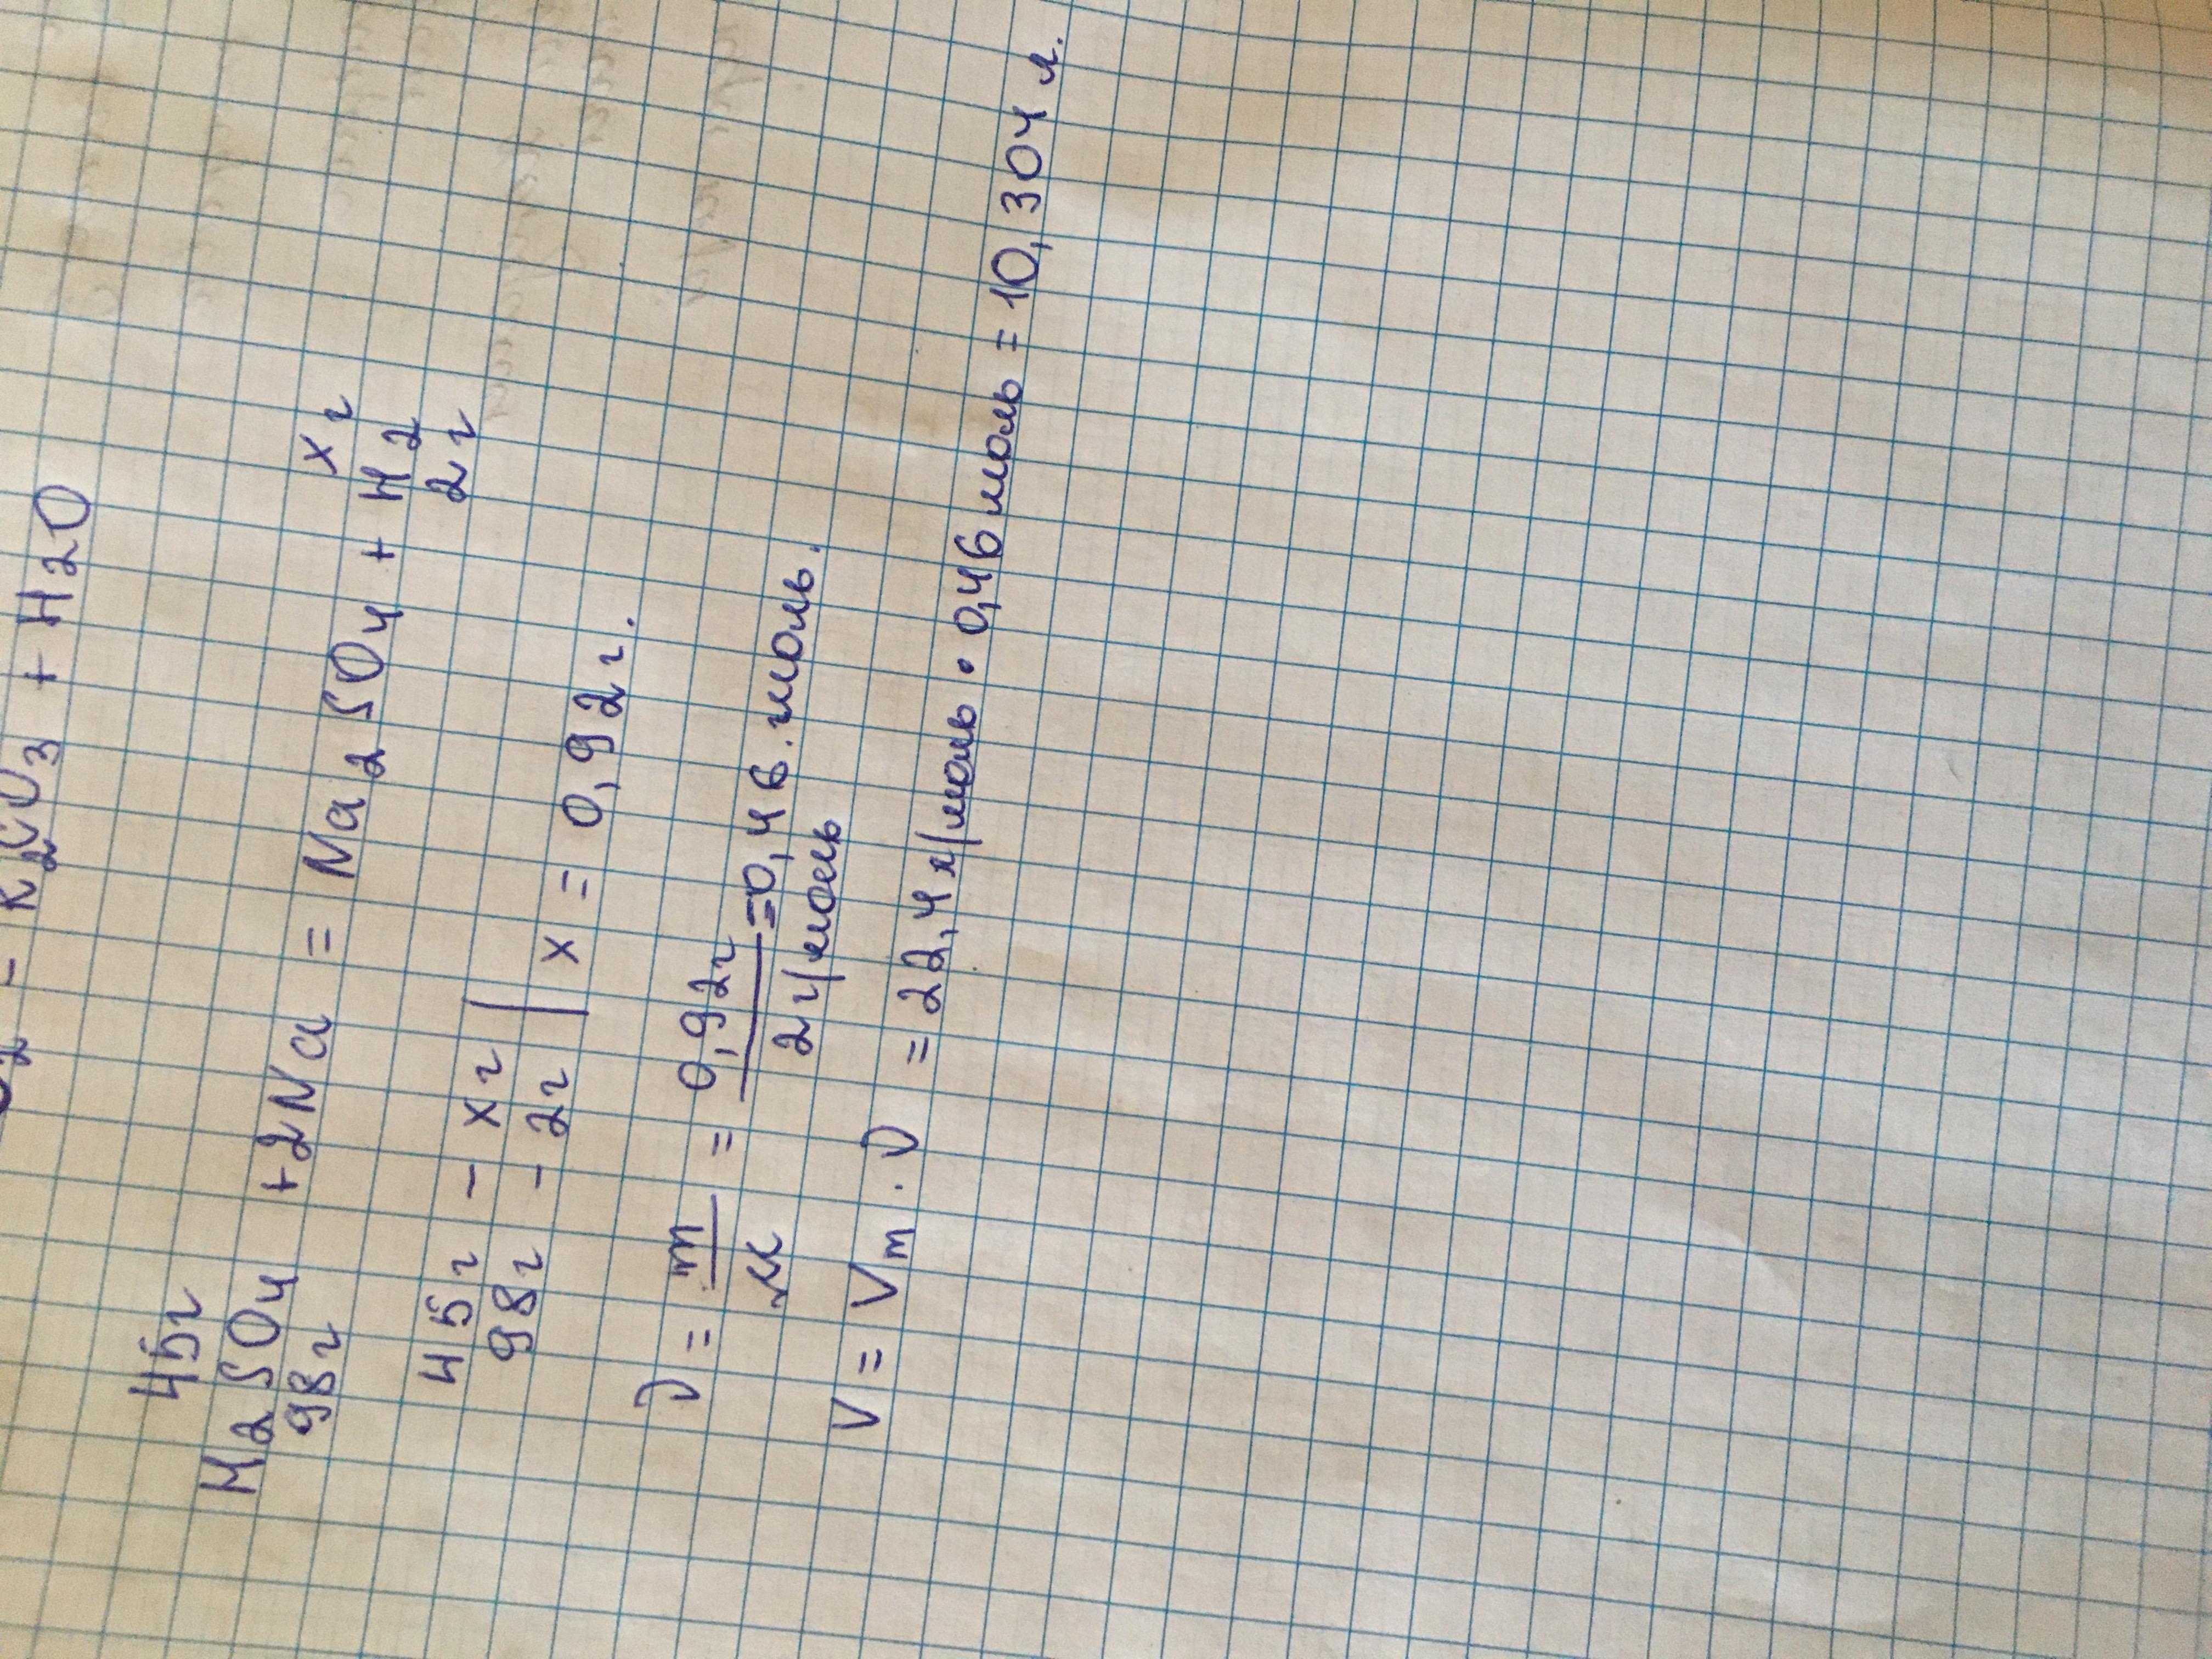 K2CO3 + H2O
45г xг
H2SO4 +2Na = Na2SO4 + H2
98г 2г
45г - xг
98г - 2г | x = 0,92г.
ν = m/M = 0,92г/2г/моль =0,46.моль.
V = Vm · ν = 22,4л/моль · 0,46моль = 10,304 л.